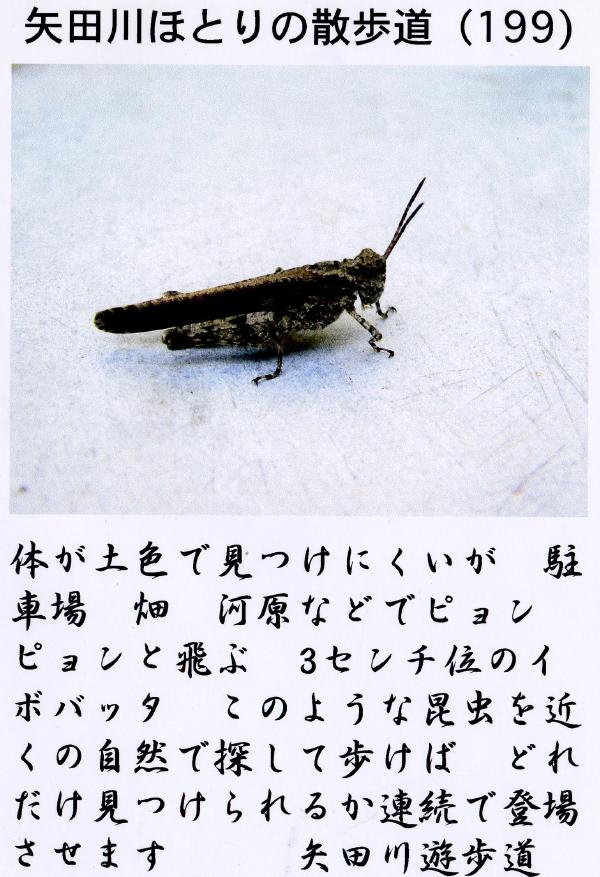 矢田川ほとりの散歩道（199）
体が土色で見つけにくいが　駐
車場　畑　河原などでピョン
ピョンと飛ぶ　3センチ位のイ
ボバッタ　このような昆虫を近
くの自然で探して歩けば　どれ
だけ見つけられるか連続で登場
させます　　　矢田川遊歩道